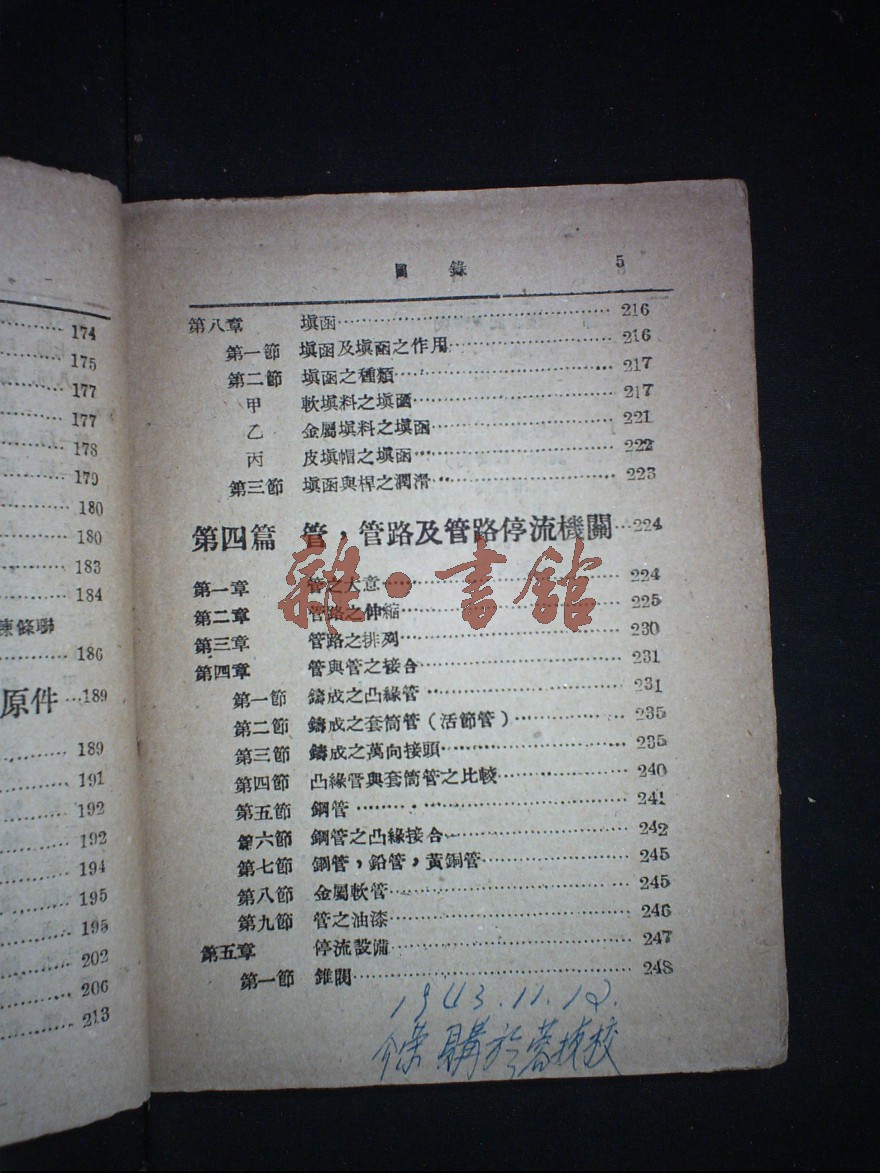 174
175
177
177
178
179
180
180
183
184
條聯
186
原件 189
189
191
192
192
194
195
195
202
206
213
目錄 5
第八章 塡函 216
第一節 塡函及塡函之作用 216
第二節 塡函之種類 217
甲 軟塡料之塡函 217
乙 金屬塡料之塡函 221
丙 皮塡帽之塡函 222
第三節 塡函與桿之潤滑 223
第四篇 管，管路及管路停流機關 224
第一章 管之大意 224
第二章 管路之伸縮 225
第三章 管路之排列 230
第四章 管與管之接合 231
第一節 鑄成之凸緣管 231
第二節 鑄成之套筒管（活節管） 235
第三節 鑄成之萬向接頭 235
第四節 凸緣管與套筒管之比較 240
第五節 鋼管 241
第六節 鋼管之凸緣接合 242
第七節 銅管，鉛管，黃銅管 245
第八節 金屬軟管 245
第九節 管之油漆 246
第五章 停流設備 247
第一節 錐閥 248
雜·書館
1943.11.12.
購於蓉